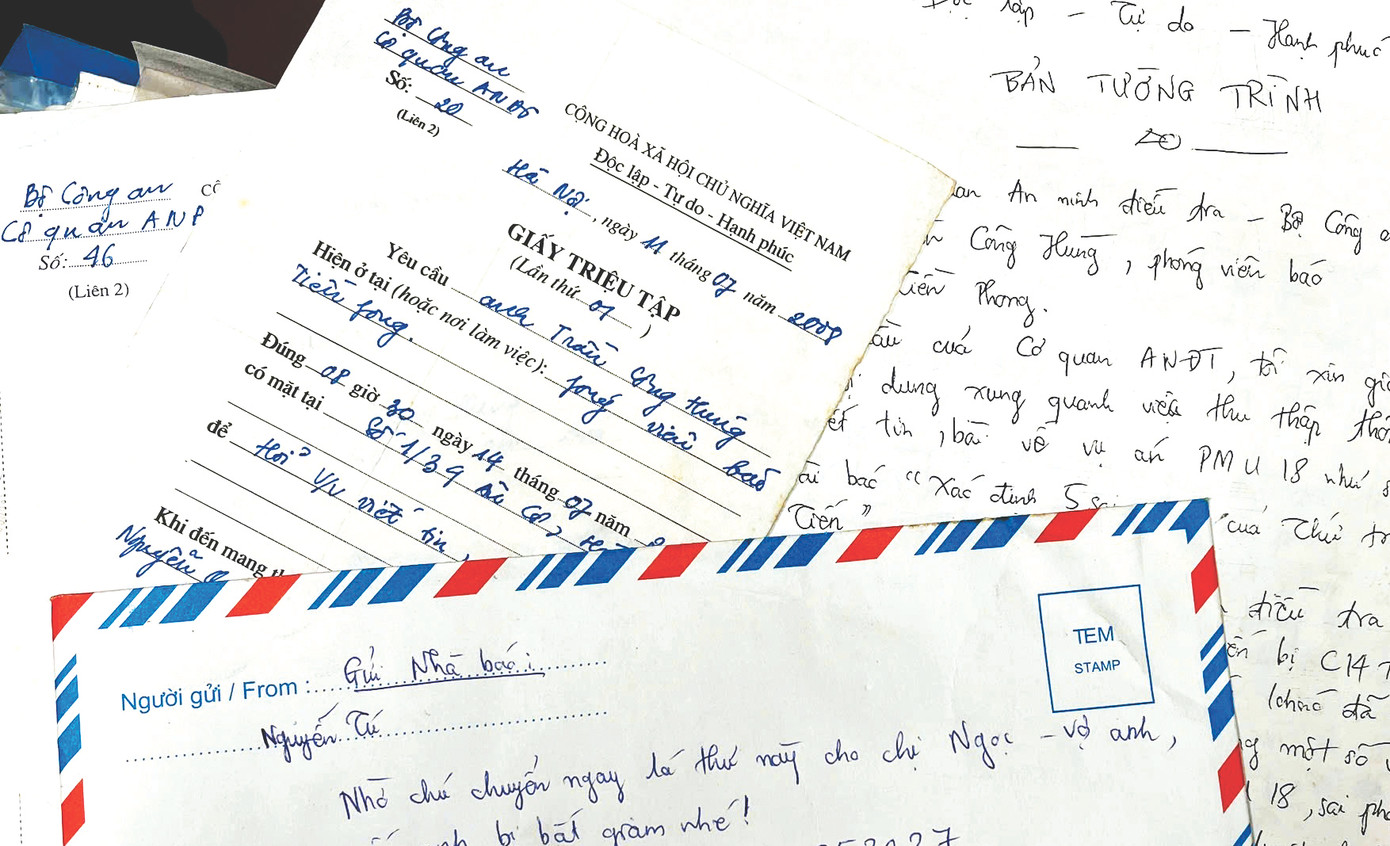 Bộ Công an
Cơ quan ANĐT
Số: 20
(Liên 2)
CỘNG HOÀ XÃ HỘI CHỦ NGHĨA VIỆT NAM
Độc lập - Tự do - Hạnh phúc
Hà Nội, ngày 11 tháng 07 năm 2008
GIẤY TRIỆU TẬP
(Lần thứ 01)
Yêu cầu anh Trần Công Hưng
Hiện ở tại (hoặc nơi làm việc): fóng viên Báo
Tiền fong.
Đúng 08 giờ 30 ngày 14 tháng 07 năm
có mặt tại Số 1/39
để Hỏi v/v viết tin,
Khi đến mang
Nguyễn
Bộ Công an
Cơ quan ANĐ
Số: 46
(Liên 2)
lập - Tự do - Hạnh phúc
BẢN TƯỜNG TRÌNH
An ninh điều tra - Bộ Công
Công Hưng, phóng viên báo
Tiền Phong.
cầu của Cơ quan ANĐT, tôi xin
dung xung quanh việc thu thập
tin, bài về vụ án PMU 18 như
bài báo “Xác định 5
Tiến”
của Thứ
điều tra
bị C14
đã
một số
18, sai
Người gửi / From : Gửi Nhà báo:
Nguyễn Tú
TEM
STAMP
Nhờ chú chuyển ngay lá thư này cho chị Ngọc - vợ anh,
bị bắt giam nhé!